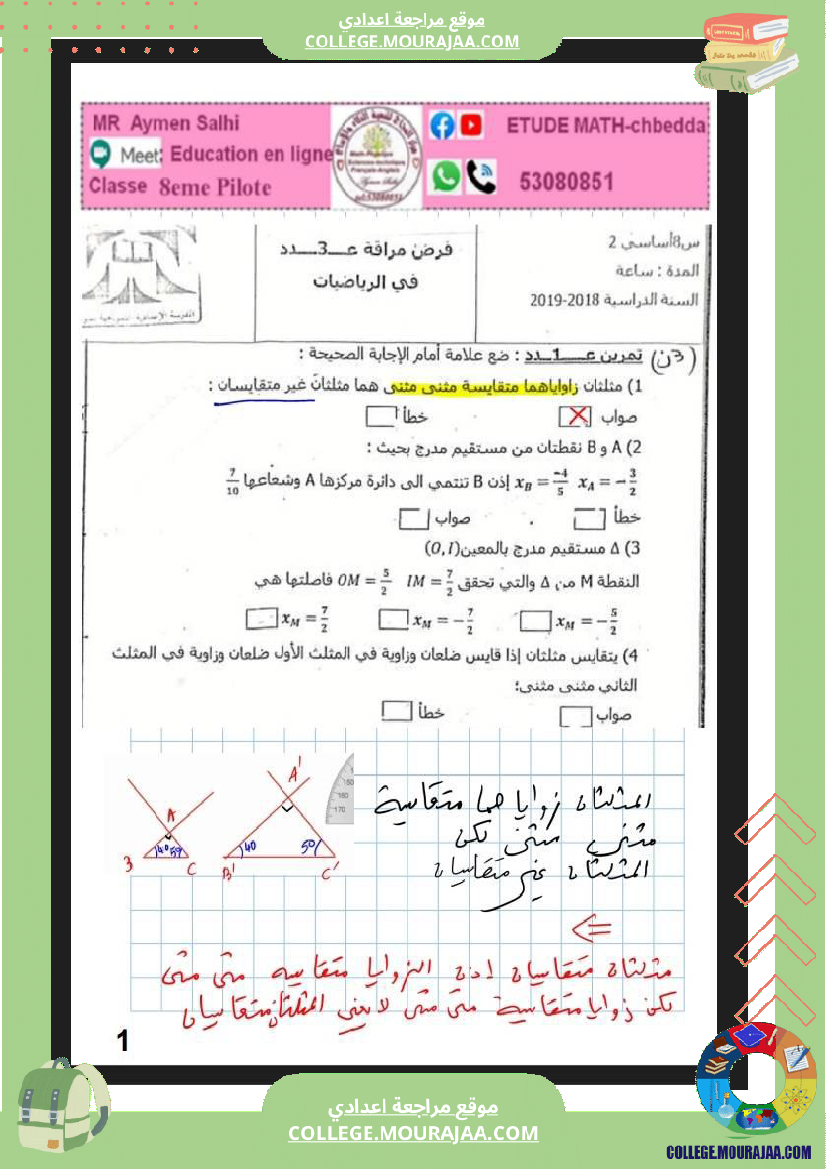 موقع مراجعة اعدادي
COLLEGE.MOURAJAA.COM
MR Aymen Salhi
Meet: Education en ligne
Classe 8eme Pilote
ETUDE MATH-chbedda
53080851
س8أساسي 2
المدة : ساعة
السنة الدراسية 2018-2019
فرض مراقة عـــ3ــــدد
في الرياضيات
(3ن) تمرين عـــــ1ــدد : ضع علامة أمام الإجابة الصحيحة :
1) مثلثان زاواياهما متقايسة مثنى مثنى هما مثلثان غير متقايسان :
صواب X خطأ
2) A و B نقطتان من مستقيم مدرج بحيث :
x_A = -3/2 x_B = -4/5 إذن B تنتمي الى دائرة مركزها A وشعاعها 7/10
خطأ صواب
3) Δ مستقيم مدرج بالمعين (O,I)
النقطة M من Δ والتي تحقق IM = 7/2 OM = 5/2 فاصلتها هي
x_M = -5/2 x_M = -7/2 x_M = 7/2
4) يتقايس مثلثان إذا قايس ضلعان وزاوية في المثلث الأول ضلعان وزاوية في المثلث
الثاني مثنى مثنى؛
صواب خطأ
A A'
40 50 40 50
B C B' C'
150
160
170
المثلثان زواياهما متقايسة
مثنى مثنى لكن
المثلثان غير متقايسان
⇐
مثلثان متقايسان إذن الزوايا متقايسه مثنى مثنى
لكن زوايا متقايسة مثنى مثنى لا يعني المثلثان متقايسان
1
موقع مراجعة اعدادي
COLLEGE.MOURAJAA.COM
COLLEGE.MOURAJAA.COM